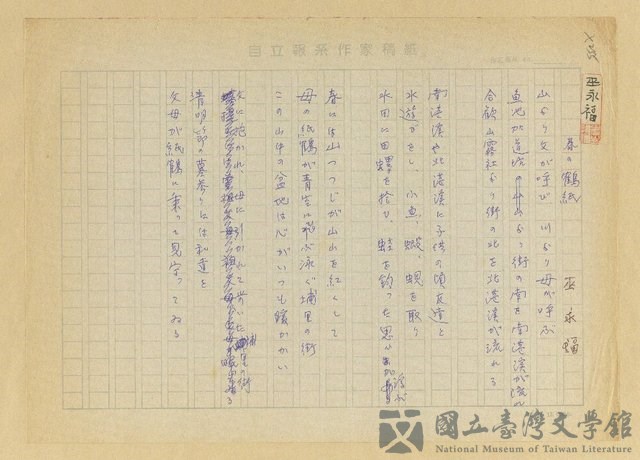 自立報系作家稿紙
巫永福
春の鶴紙
巫永福
山より父が呼び 川より母が呼ぶ
合歓山霧社より街の北を北港渓が流れる
南港渓や北港渓に子供の頃友達と
水遊びをし、小魚、蝦、蜆を取り
水田に田螺を拾ひ 蛙を釣った思い出が
春には山つつじが山山を紅くして
母の紙鶴が青空に飛ぶ泳ぐ埔里の街
この山中の盆地は心がいつも暖かい
父に抱かれ、母に引かれて歩いた埔里の街
清明節の墓参りには和達を
父母が紙鶴に乗って見守ってゐる
國立臺灣文學館
National Museum of Taiwan Literature